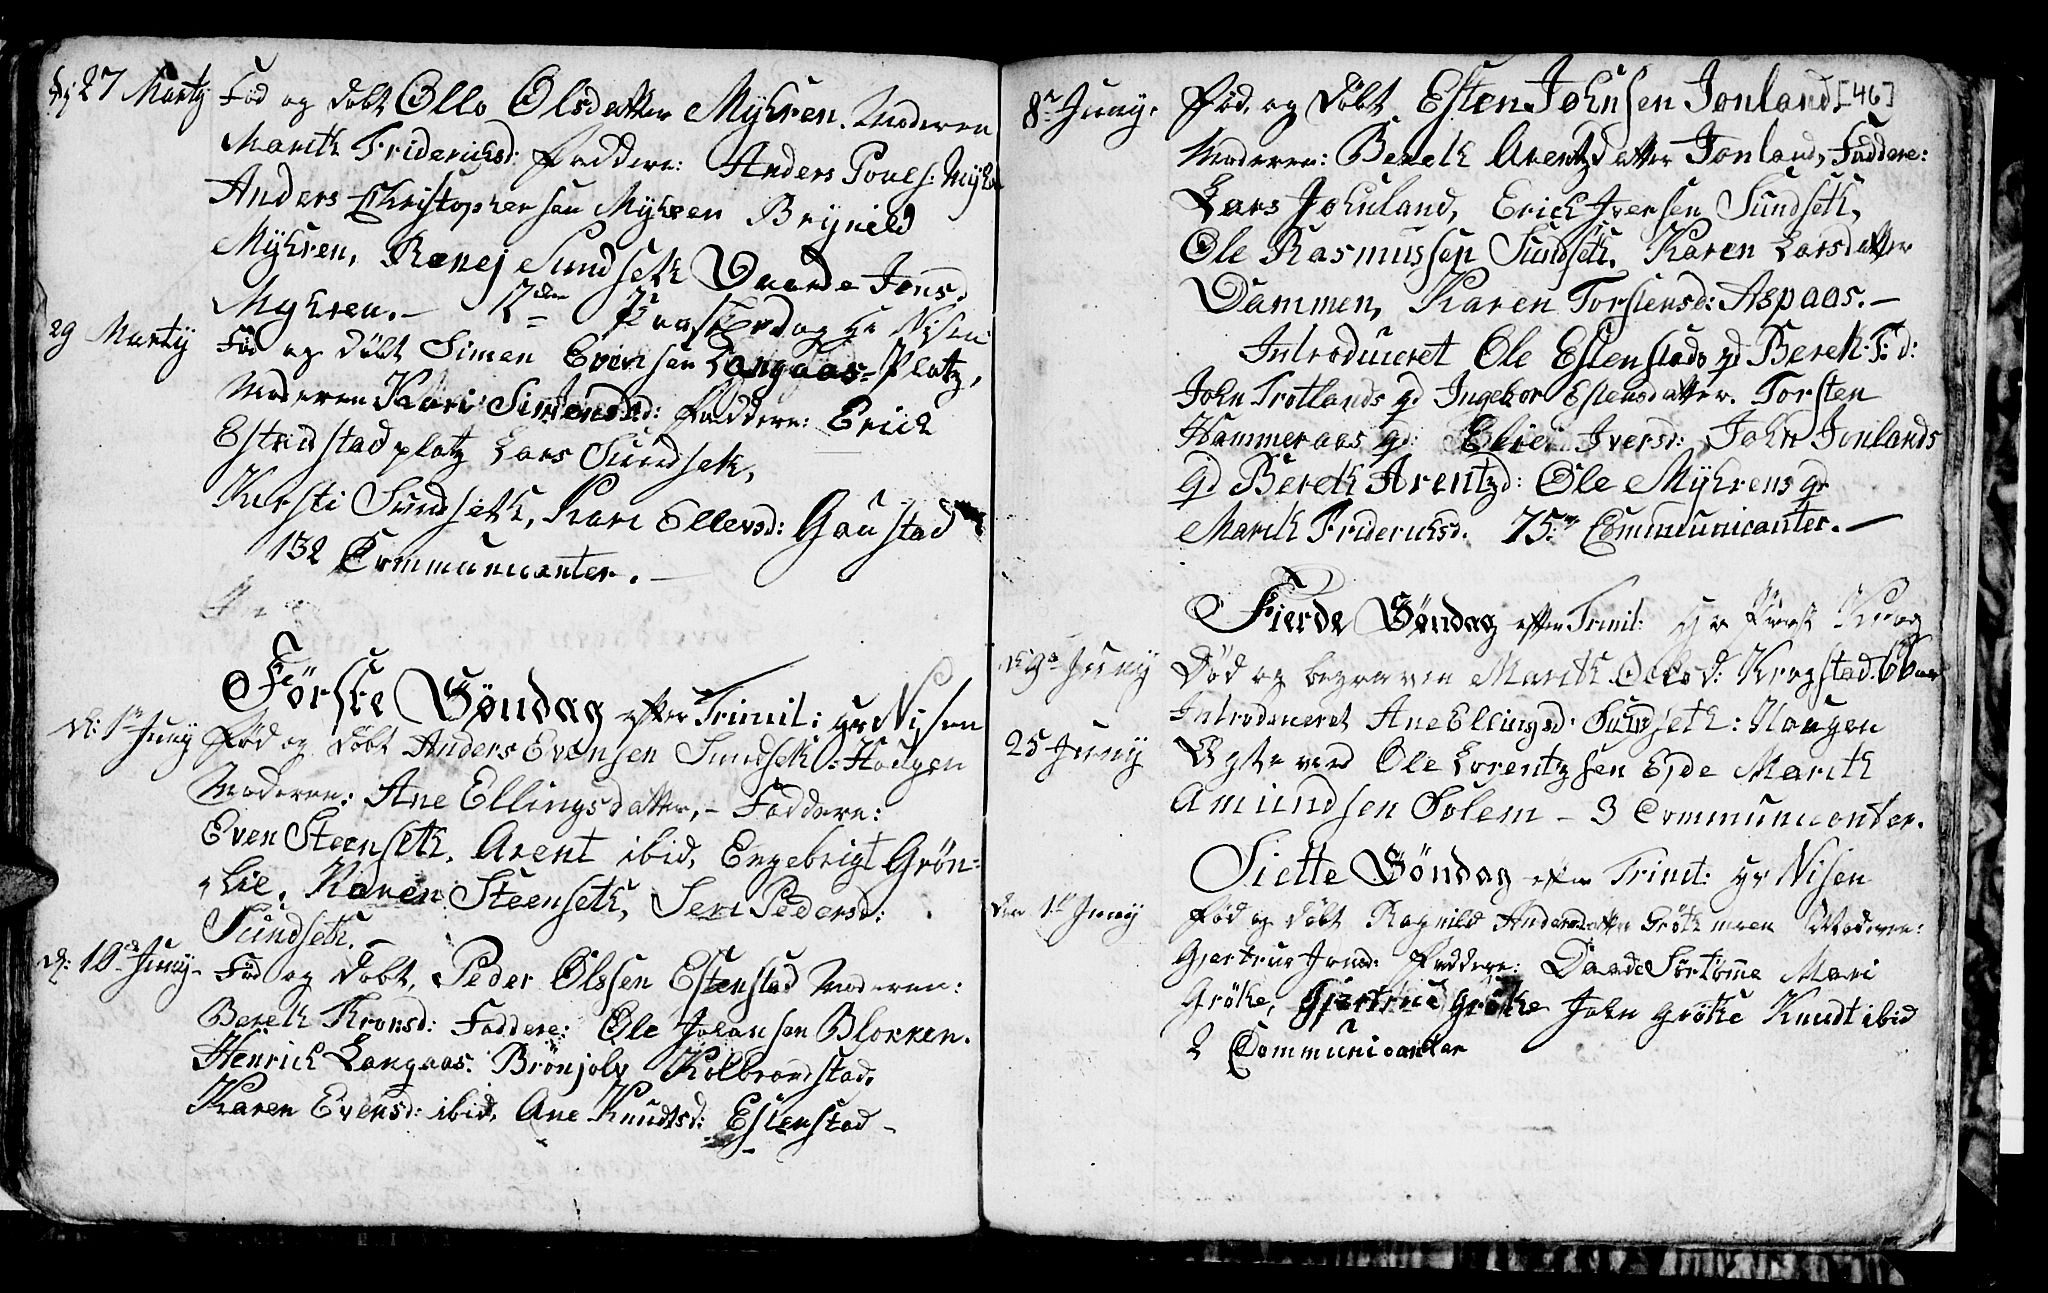 27 Marty Fød og døbt Ollo Olsdatter Myhren. Moderen
Marith Friderichsd: Faddere: Anders Povels: Myhr
Anders Christophersen Myhren Bryneld
Myhren, Ranej Sundseth Daarde Jonsd
Myhren.— 2den Paaskedag hr Nisen
29 Marty Fød og døbt Simen Evensen Langaas-Platz,
Moderen Kari Simensd: Faddere: Erich
Estenstadplatz Lars Sundseth,
Kersti Sundseth, Kari Ellevsd: Gaustad
132 Communicanter.—
Første Søndag efter Trinit: hr Nisen
d: 1ste Juny Fød og døbt Anders Evensen Sundseth: Hougen
Moderen: Ane Ellingsdatter,- Faddere:
Even Steenseth, Arent ibid, Engebrigt Grøn-
-lie, Karen Steenseth, Seri Pedersd:
Sundseth.-
d: 10de Juny- Fød og døbt, Peder Olssen Estenstad Moderen:
Bereth Tronsd: Faddere: Ole Johansen Blokken.
Henrich Langaas. Brønjolv Kolbrandstad,
Karen Evensd: ibid, Ane Knudtsd: Estenstad-
8de Juny. Fød og døbt Esten Johnsen Jonland [46]
Moderen: Bereth Arentzdatter Jonland, Faddere:
Lars Johnland, Erich Iversen Sundseth,
Ole Rasmussen Sundseth. Karen Larsdatter
Dammen, Karen Torstensd: Aspaas.—
Introduceret Ole Estenstads qd Bereth T: d:
John Trotlands qd Ingebor Estensdatter. Torsten
Hammeraas qd: Iversd: John Jonlands
qd Bereth Arentzd: Ole Myhrens qd
Marith Friderichsd. 75 Communicanter.—
Fierde Søndag efter Trinit: hr Krog
d: 9de Juny Død og begraven Marith Olsd: Krogstad. 66 aar
Introduceret Ane Ellingsd: Sundseth: Hougen
25 Juny Egteved Ole Lorentzsen Eide Marith
Amundsen Solem - 3 Communicanter.
Siette Søndag efter Trinit: hr Nisen
den 1ste Juny Fød og døbt Ragnild Andersdatter Grøthmoen Moderen:
Gjertrue Jonsd: Faddere: Daade Sørtømme Mari
Grøthe, Gjertrue Grøthe John Grøthe Knudt ibid
2 Communicanter